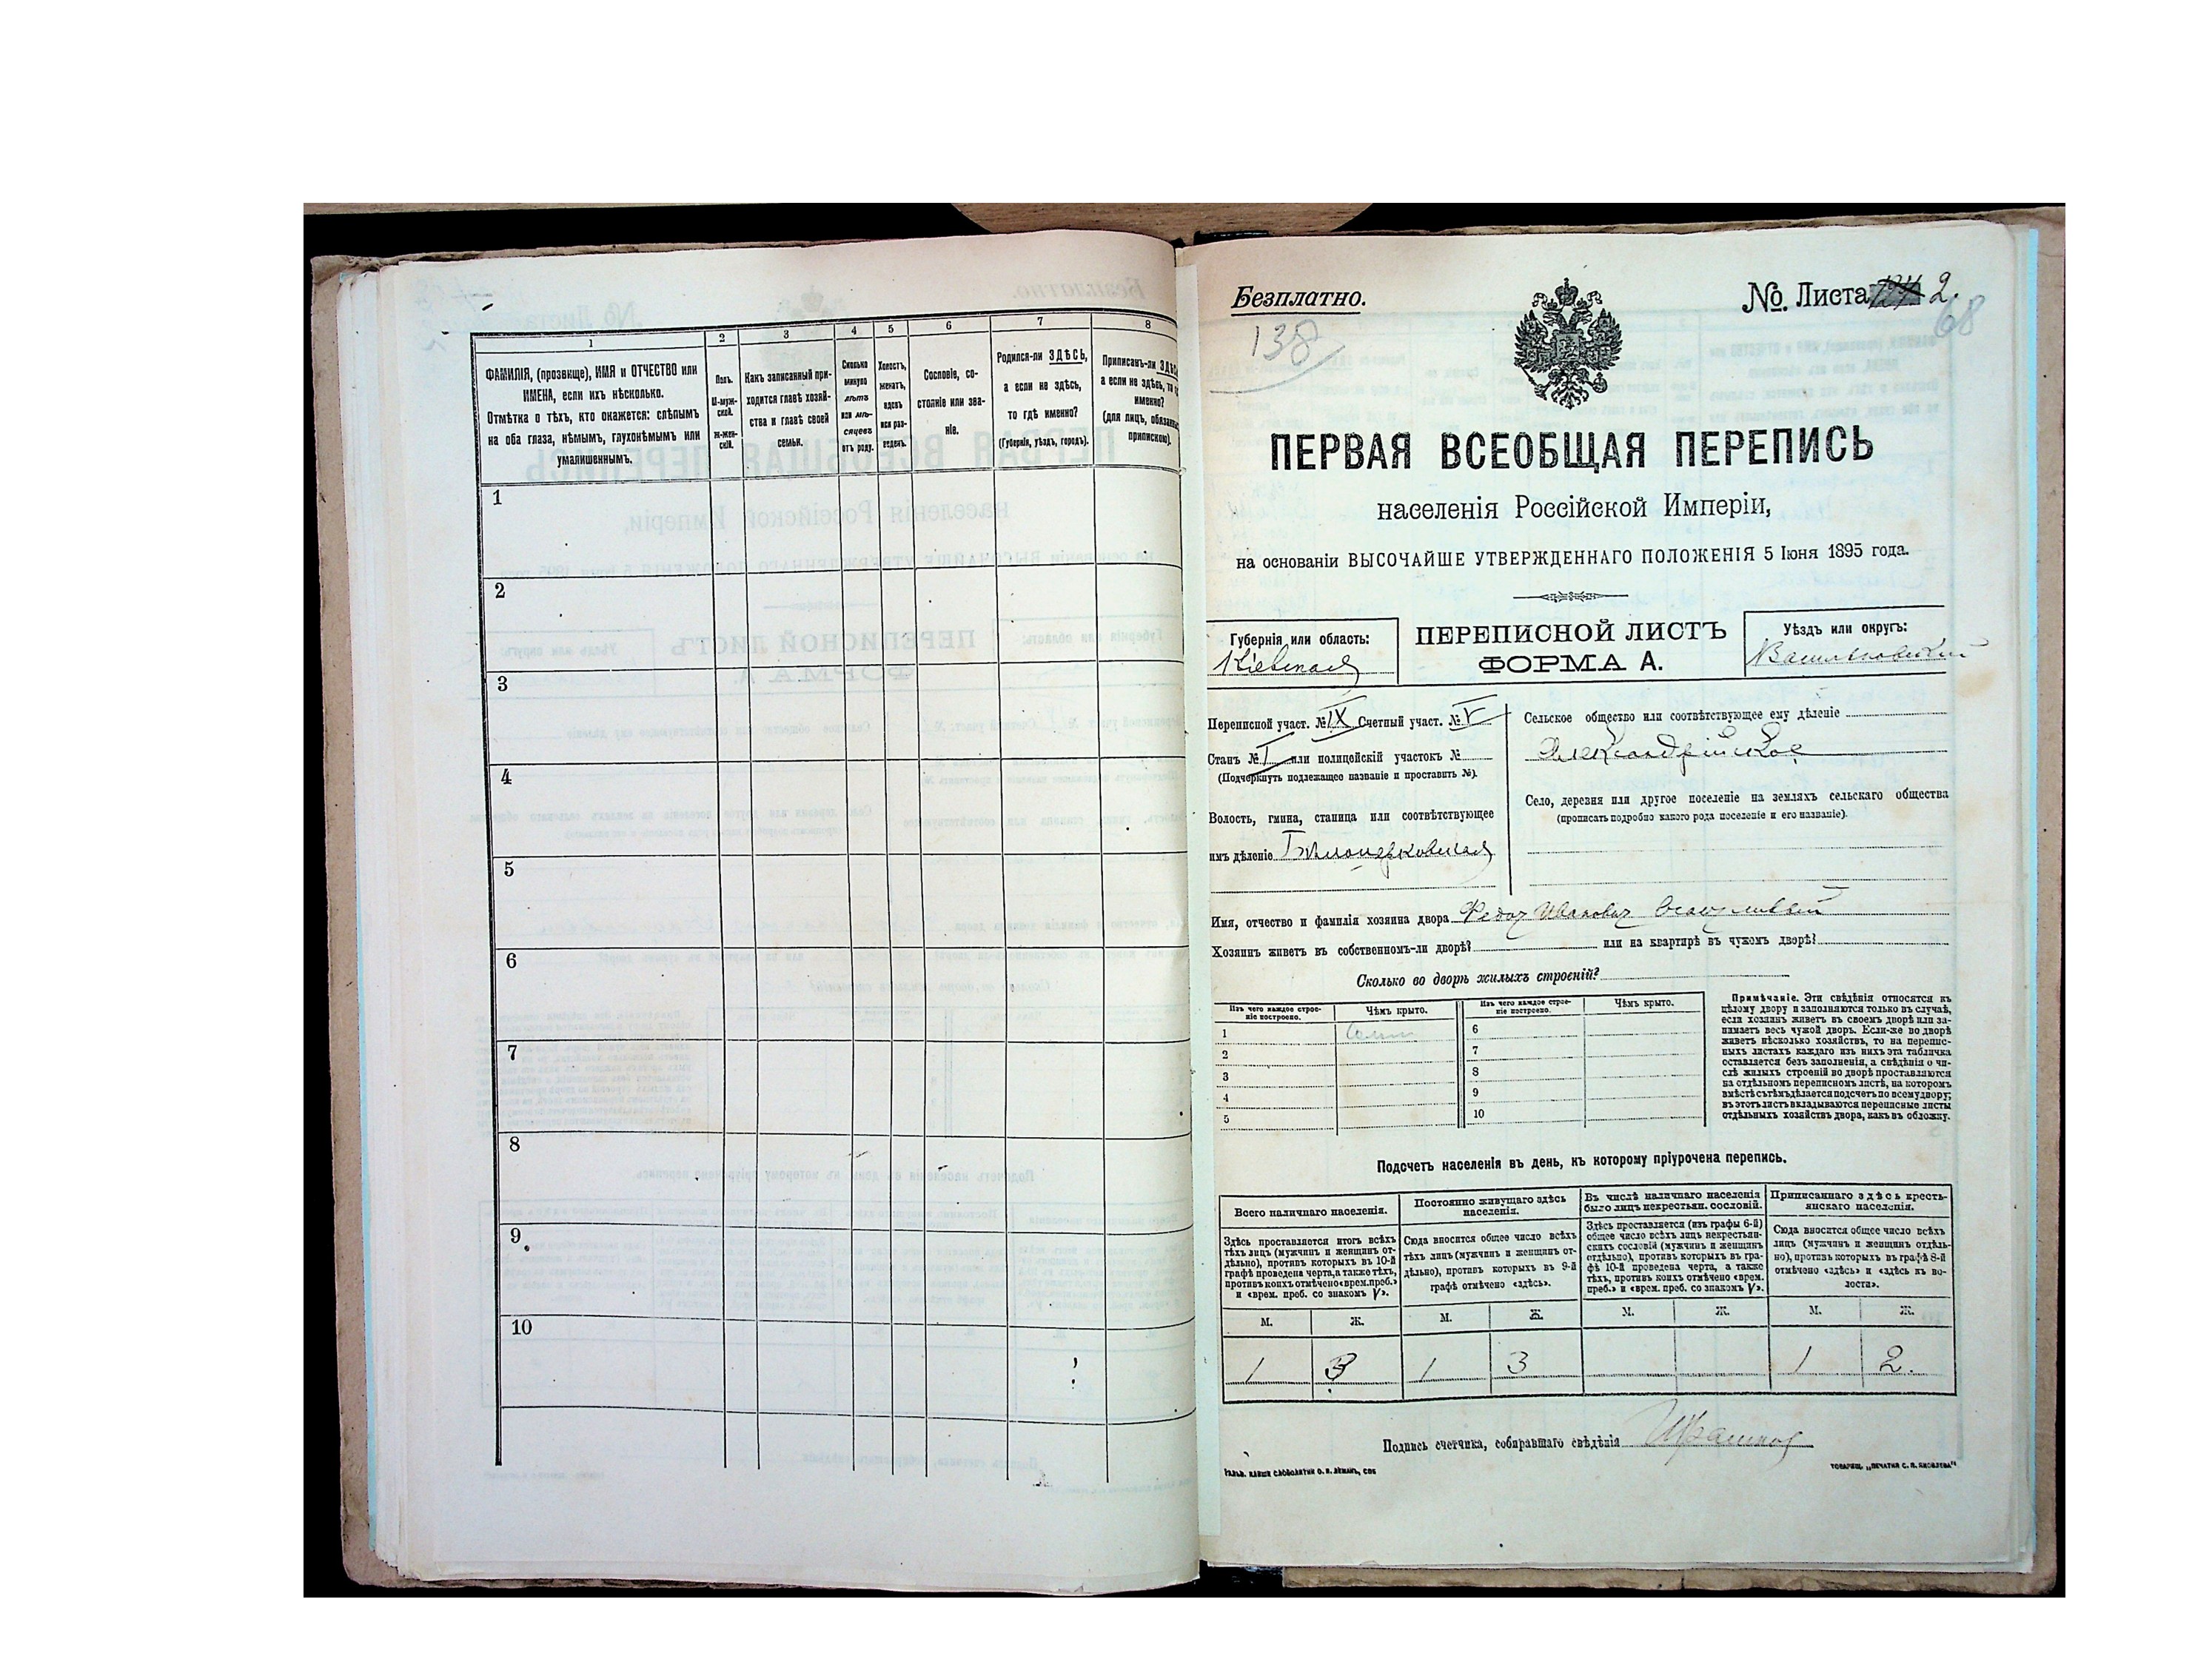 1 2 3 4 5 6 7 8
ФАМИЛІЯ, (прозвище), ИМЯ и ОТЧЕСТВО или
ИМЕНА, если ихъ нѣсколько.
Отмѣтка о тѣхъ, кто окажется: слѣпымъ
на оба глаза, нѣмымъ, глухонѣмымъ или
умалишеннымъ.
Полъ.
М-муж-
ской.
Ж-жен-
скій.
Какъ записанный при-
ходится главѣ хозяй-
ства и главѣ своей
семьи.
Сколько
минуло
лѣтъ
или мѣ-
сяцевъ
отъ роду.
Холостъ,
женатъ,
вдовъ
или раз-
веденъ.
Сословіе, со-
стояніе или зва-
ніе.
Родился-ли ЗДѢСЬ,
а если не здѣсь,
то гдѣ именно?
(Губернія, уѣздъ, городъ).
Приписанъ-ли ЗДѢСЬ
а если не здѣсь, то
именно?
(для лицъ,
припискою).
1
2
3
4
5
6
7
8
9
10
Безплатно.
№ Листа 2.
138
68
ПЕРВАЯ ВСЕОБЩАЯ ПЕРЕПИСЬ
населенія Россійской Имперіи,
на основаніи ВЫСОЧАЙШЕ УТВЕРЖДЕННАГО ПОЛОЖЕНІЯ 5 Іюня 1895 года.
Губернія или область:
Кіевская
ПЕРЕПИСНОЙ ЛИСТЪ
ФОРМА А.
Уѣздъ или округъ:
Васильковскій
Переписной участ. № IX Счетный участ. № V
Станъ № I или полицейскій участокъ №
(Подчеркнуть подлежащее названіе и проставить №).
Волость, гмина, станица или соотвѣтствующее
имъ дѣленіе Бѣлоцерковская
Сельское общество или соотвѣтствующее ему дѣленіе
Александрійское
Село, деревня или другое поселеніе на земляхъ сельскаго общества
(прописать подробно какого рода поселеніе и его названіе).
Имя, отчество и фамилія хозяина двора Федоръ Ивановичъ
Хозяинъ живетъ въ собственномъ-ли дворѣ? или на квартирѣ въ чужомъ дворѣ?
Сколько во дворѣ жилыхъ строеній?
Изъ чего каждое строе-
ніе построено.
Чѣмъ крыто.
Изъ чего каждое строе-
ніе построено.
Чѣмъ крыто.
1 6
2 7
3 8
4 9
5 10
Примѣчаніе. Эти свѣдѣнія относятся къ
цѣлому двору и заполняются только въ случаѣ,
если хозяинъ живетъ въ своемъ дворѣ или за-
нимаетъ весь чужой дворъ. Если-же во дворѣ
живетъ нѣсколько хозяйствъ, то на перепис-
ныхъ листахъ каждаго изъ нихъ эта табличка
оставляется безъ заполненія, а свѣдѣнія о чи-
слѣ жилыхъ строеній во дворѣ проставляются
на отдѣльномъ переписномъ листѣ, на которомъ
вмѣстѣ съ тѣмъ дѣлается подсчетъ по всему двору;
въ этотъ листъ вкладываются переписные листы
отдѣльныхъ хозяйствъ двора, какъ въ обложку.
Подсчетъ населенія въ день, къ которому пріурочена перепись.
Всего наличнаго населенія.
Здѣсь проставляется итогъ всѣхъ
тѣхъ лицъ (мужчинъ и женщинъ от-
дѣльно), противъ которыхъ въ 10-й
графѣ проведена черта, а также тѣхъ,
противъ коихъ отмѣчено «врем. преб.»
и «врем. преб. со знакомъ V».
Постоянно живущаго здѣсь
населенія.
Сюда вносится общее число всѣхъ
тѣхъ лицъ (мужчинъ и женщинъ от-
дѣльно), противъ которыхъ въ 9-й
графѣ отмѣчено «здѣсь».
Въ числѣ наличнаго населенія
было лицъ некрестьян. сословій.
Здѣсь проставляется (изъ графы 6-й)
общее число всѣхъ лицъ некрестьян-
скихъ сословій (мужчинъ и женщинъ
отдѣльно), противъ которыхъ въ гра-
фѣ 10-й проведена черта, а также
тѣхъ, противъ коихъ отмѣчено «врем.
преб.» и «врем. преб. со знакомъ V».
Приписаннаго здѣсь кресть-
янскаго населенія.
Сюда вносится общее число всѣхъ
лицъ (мужчинъ и женщинъ отдѣль-
но), противъ которыхъ въ графѣ 8-й
отмѣчено «здѣсь» и «здѣсь къ во-
лости».
М. Ж. М. Ж. М. Ж. М. Ж.
1 3 1 3 1 2.
Подпись счетчика, собиравшаго свѣдѣнія
ТОВАРИЩ. „ПЕЧАТНЯ С. П. ЯКОВЛЕВА“